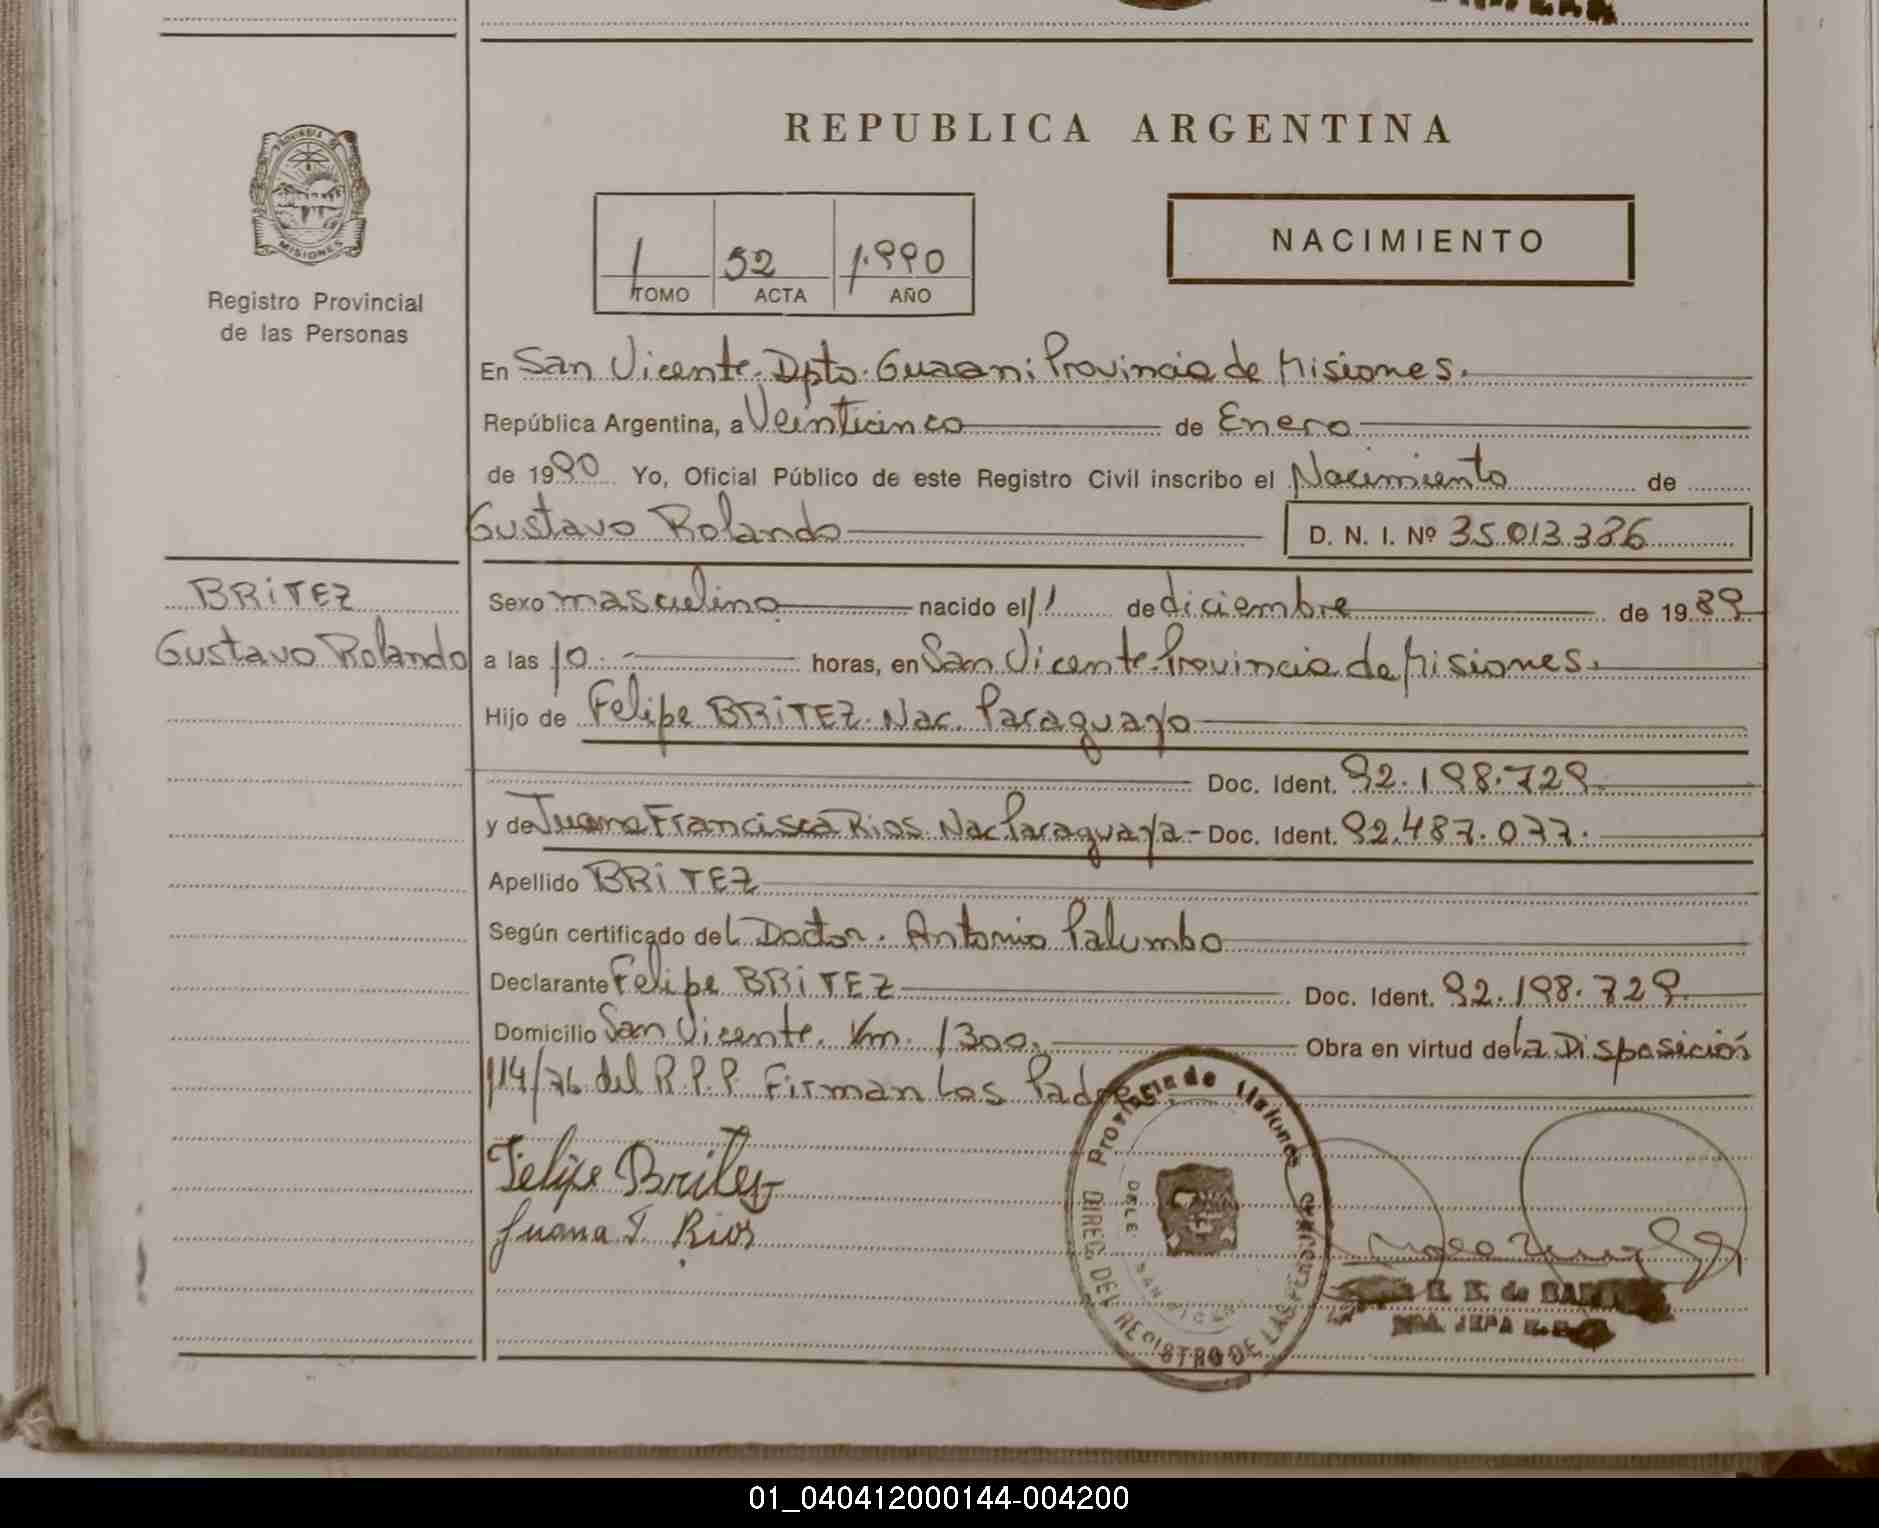 REPUBLICA ARGENTINA
PROVINCIA DE
MISIONES
Registro Provincial
de las Personas
1 52 1.990
TOMO ACTA AÑO
NACIMIENTO
En San Vicente. Dpto. Guarani Provincia de Misiones.
República Argentina, a Veinticinco de Enero
de 1990 Yo, Oficial Público de este Registro Civil inscribo el Nacimiento de
Gustavo Rolando D. N. I. Nº 35.013.386
BRITEZ
Gustavo Rolando
Sexo masculino nacido el 11 de diciembre de 1989
a las 10. horas, en San Vicente. Provincia de Misiones.
Hijo de Felipe BRITEZ. Nac. Paraguayo
Doc. Ident. 92.198.729
y de Juana Francisca Rios. Nac Paraguaya - Doc. Ident. 92.487.077.
Apellido BRITEZ
Según certificado del Doctor. Antonio Palumbo
Declarante Felipe BRITEZ Doc. Ident. 92.198.729
Domicilio San Vicente. Km. 1300. Obra en virtud de la Disposición
114/76 del R.P.P. Firman Los Padres.
Felipe Britez
Juana F. Rios
Provincia de Misiones
DIREC. DEL REGISTRO DE LAS PERSONAS
DELE. SAN VICEN
01_040412000144-004200